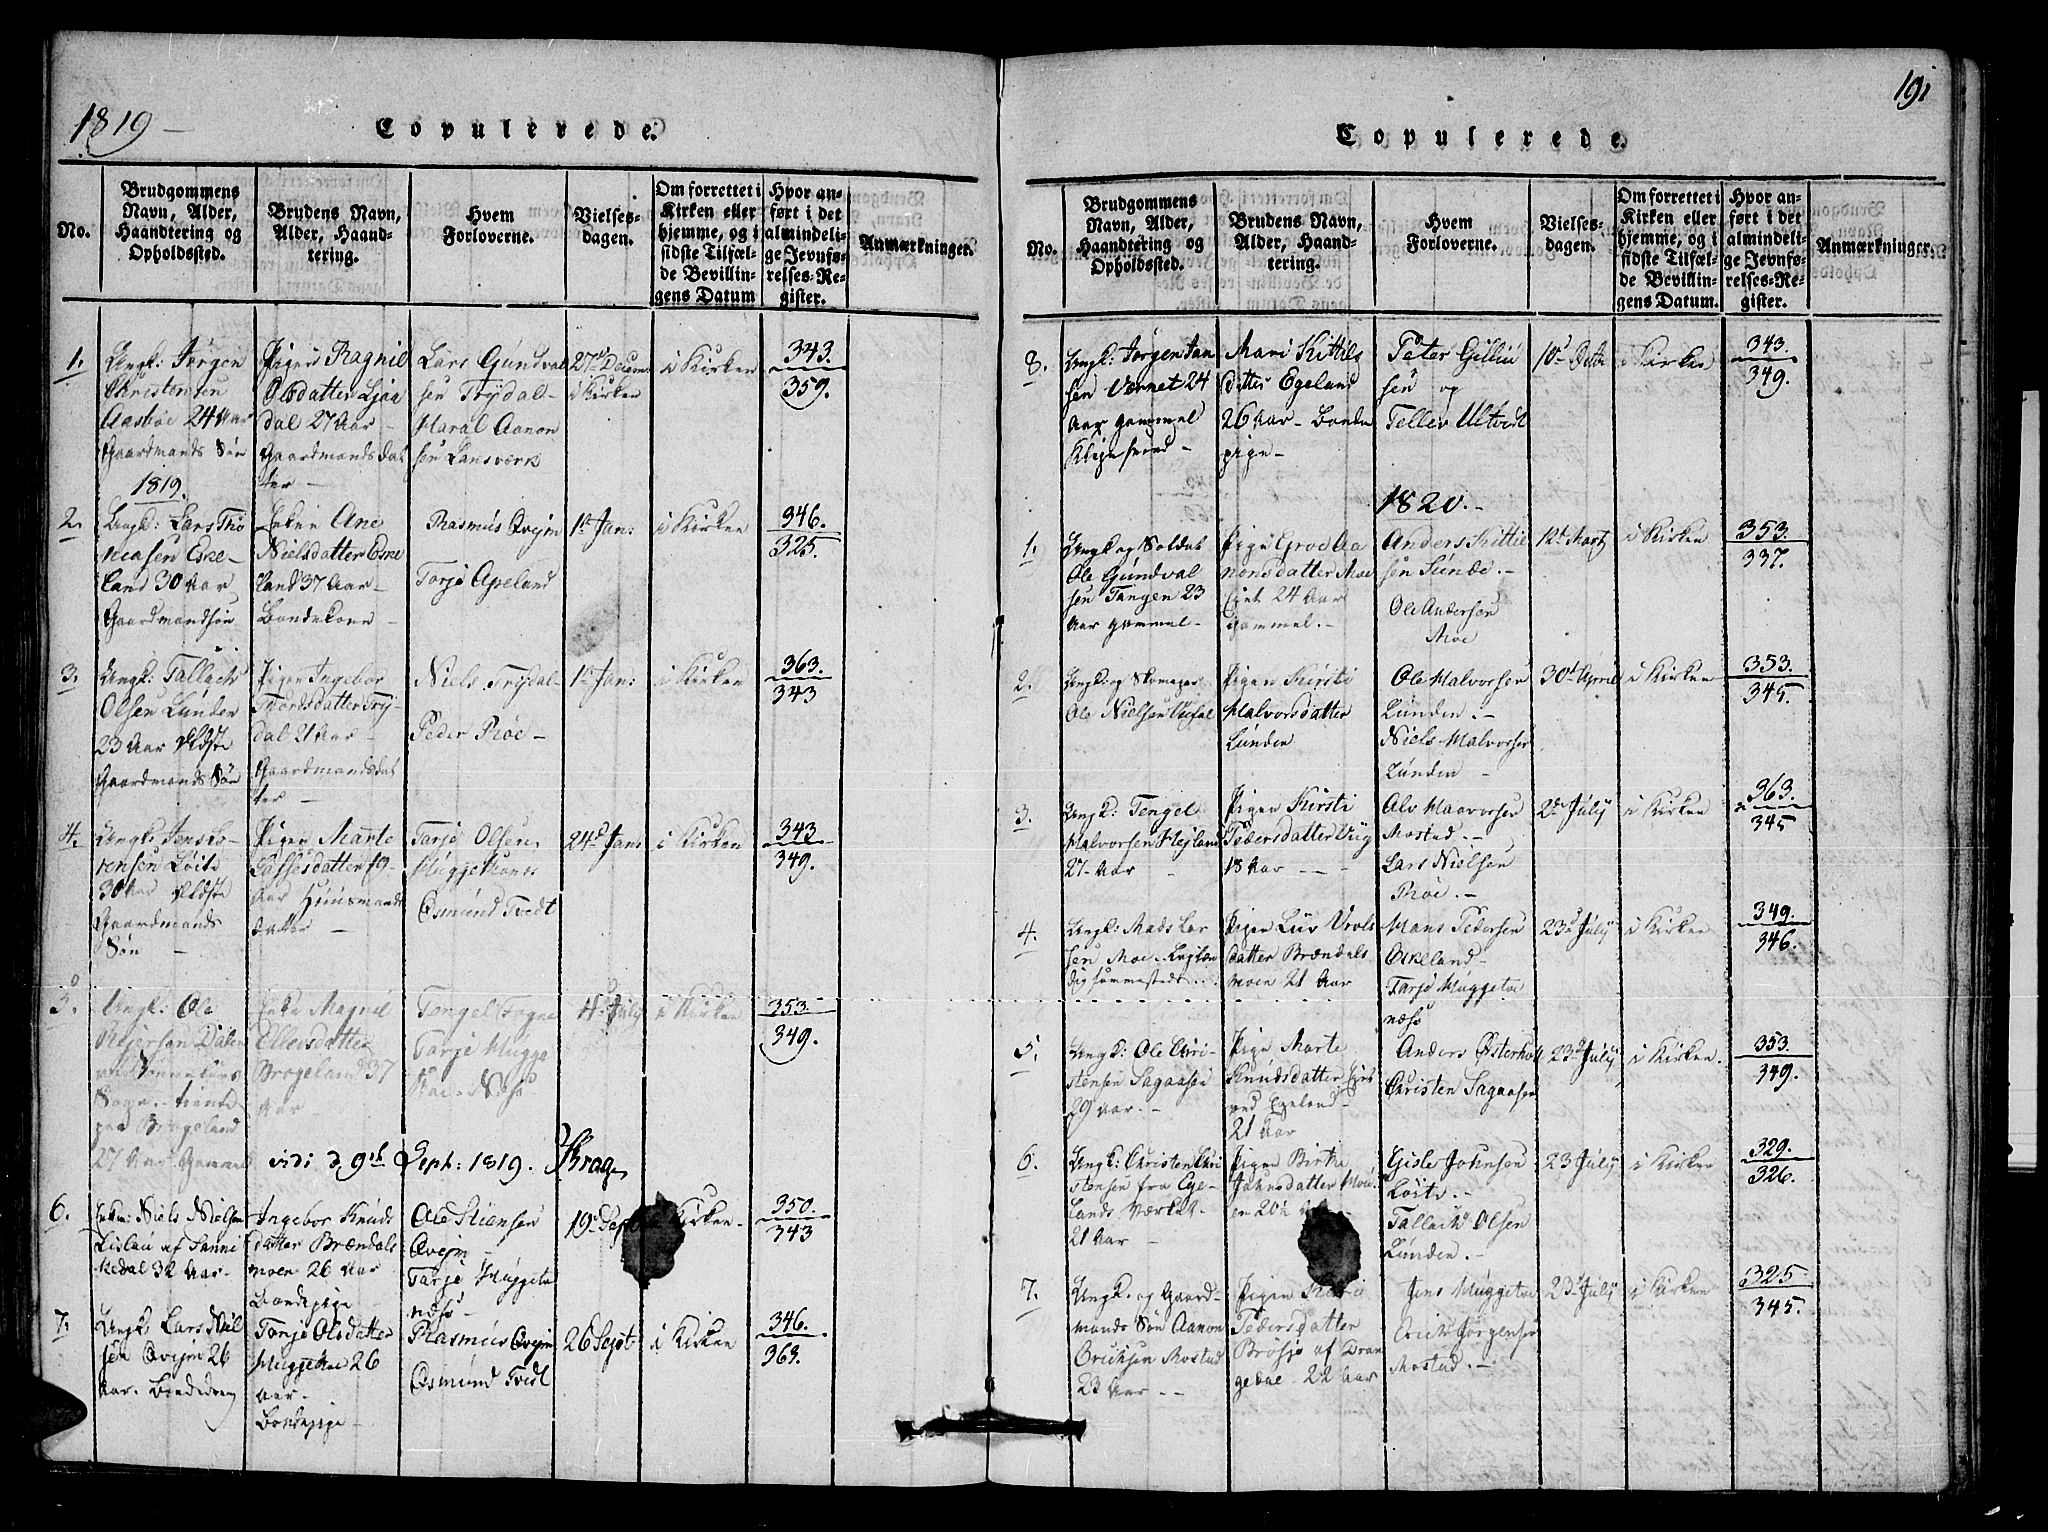 1819 —
Copulerede.
No.
Brudgommens
Navn, Alder,
Haandtering og
Opholdssted.
Brudens Navn,
Alder, Haand-
tering.
Hvem
Forloverne.
Vielses-
dagen.
Om forrettet i
Kirken eller
hjemme, og i
sidste Tilfæl-
de Bevillin-
gens Datum
Hvor an-
ført i det
almindeli-
ge Jevnfø-
relses-Re-
gister.
Anmærkninger.
1.
Ungk: Jørgen
Christensen
Aasboe 24 Aar
Gaardmands Søn
Pigen Ragnil
Olsdatter Ljaa
dal 27 Aar –
Gaardmandsdat
ter –
Lars Gundval
sen Trydal –
Haral Aanon
sen Lansværk
27d Decem
i Kirken
i Kirken
343.
359.
1819.
2.
Ungk: Lars Tho
measen Eske-
land 30 Aar
Gaardmandsøn
Enken Ane
Nielsdatter Eske
land 37 Aar –
Bondekone –
Rasmus Qvejm
Torje Apeland
1d Jan:
i Kirken
346.
325.
3.
Ungk: Tallach
Olsen Lunden
23 Aar Ældste
Gaardmands Søn
Pigen Ingebor
Tiordsdatter Try-
dal 21 Aar –
Gaardmandsdat
ter –
Niels Trydal –
Peder Roe –
1d Jan:
i Kirken
363.
343
4.
Ungk: Jens Lo-
rensen Løite
30 Aar Ældste
Gaardmands
Søn –
Pigen Marte
Lassesdatter 19 –
Aar Huusmands
datter –
Tarje Olsen
Muggetkoes
Osmund Tvedt
24d Jan:
i Kirken
343
349.
5.
Ungk: Ole
Sogn – tiente
paa Brogeland
27 Aar Gammel
Enke Magnil
Ellefsdatter
Brogeland 37
Aar
Tengel Fogne
Tarje Mugge
4d July
i Kirken
353.
349.
vidi d 9th Sept: 1819. Krag
6.
Enkm: Niels Nielsen
Lislau af Sanni
kedal 32 Aar –
Ingebor Knuds
datter Brændals
moen 26 Aar
Bondepige
Ole Stiansen
Qvejm –
Tarje Muggetu
næss
19d Sept
i Kirken –
350.
343
7.
Ungk Lars Niel
sen Qvejm 26
Aar. Bondedreng
Torje Olsdatter
Muggetkoe 26
Aar.
Bondepige –
Rasmus Qvejm
Osmund Tvedt
26 Sept
i Kirken
346.
363.
191
Copulerede.
No.
Brudgommens
Navn, Alder,
Haandtering og
Opholdssted.
Brudens Navn,
Alder, Haand-
tering.
Hvem
Forloverne.
Vielses-
dagen.
Om forrettet i
Kirken eller
hjemme, og i
sidste Tilfæl-
de Bevillin-
gens Datum.
Hvor an-
ført i det
almindeli-
ge Jevnfø-
relses-Re-
gister.
Anmærkninger.
8.
Ungk: Jørgen Jan
sen Vernet 24
Aar gammel
Mari Kittils
datter Egeland
26 Aar – Bonde
pige –
Peter Gilliu
sen og
Tellev Ultvedt
10d Octb
i Kirken
343.
349.
1820. –
1.
Ungk og Soldat
Ole Gundval
sen Tangen 23
Aar gammel –
Pigen Groe Aa
nonsdatter Moe
Ejet 24 Aar
Gammel. –
Anders Kittil
sen Sunde. –
Ole Andersen
Moe
12d Marty
i Kirken
353.
337.
2.
Ungk: og Skomager
Ole Nielsen
Pigen Kirsti
Halvorsdatter
Lunden
Ole Halvorsen
Lunden. –
Niels Halvorsen
Lunden –
30d April
i Kirken
353.
345.
3.
Ungk: Tengel
Halvorsen Hejland
27 – Aar
Pigen Kirsti
Pedersdatter Viig
18 Aar – –
Alv Haavorsen
Mostad. –
Lars Nielsen
Roe. –
2d July
i Kirken
363.
345
4.
Ungk: Mads Lar
sen Moe –
Pigen Liiv Urols
datter Brændals
moen 21 Aar
Hans Pedersen
Eskeland –
Tarje Muggetu
næss
23d July
i Kirken
349.
346.
5.
Ungk: Ole Chri-
stensen Sagaasen
29 Aar. –
Pige Marte
Knudsdatter Ejet
ved Egeland –
21 Aar
Anders Østerholt
Christen Sagaasen
23d July
i Kirken.
353.
349.
6.
Ungk: Christen Chri
stensen fra Ege-
lands Værket –
21 Aar –
Pigen Birthe
Johnsdatter Moe
en 20½ Aar
Gisle Johnsen
Løite. –
Tallach Olsen
Lunden. –
23 July
i Kirken
329.
326.
7.
Ungk. og Gaard-
mands Søn Aanon
Ericksen Mostad
23 Aar – –
Pigen Kari
Pedersdatter
Brøsjø af Dran
gedal – 22 Aar
Jens Muggetu
Erich Jørgensen
Mostad. –
23d July
i Kirken
325
345.